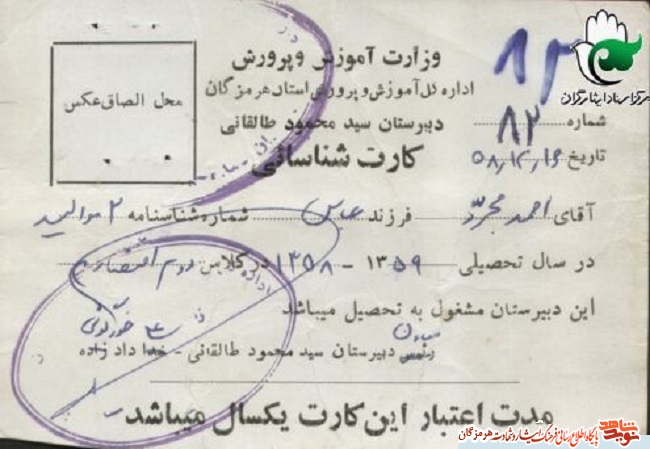 وزارت آموزش و پرورش
اداره کل آموزش و پرورش استان هرمزگان
دبیرستان سید محمود طالقانی
کارت شناسائی
محل الصاق عکس
۸۲
مرکز اسناد ایثارگران
شماره ۸۲
تاریخ ۵۸/۱۲/۱۶
آقای احمد مجرد فرزند عباس شماره شناسنامه ۲ موالید
در سال تحصیلی ۱۳۵۹ - ۱۳۵۸ در کلاس دوم اقتصاد
این دبیرستان مشغول به تحصیل میباشد
معاون
رئیس دبیرستان سید محمود طالقانی - خداداد زاده
مدت اعتبار این کارت یکسال میباشد
نوید شاهد
پایگاه اطلاع رسانی فرهنگ ایثار و شهادت هرمزگان